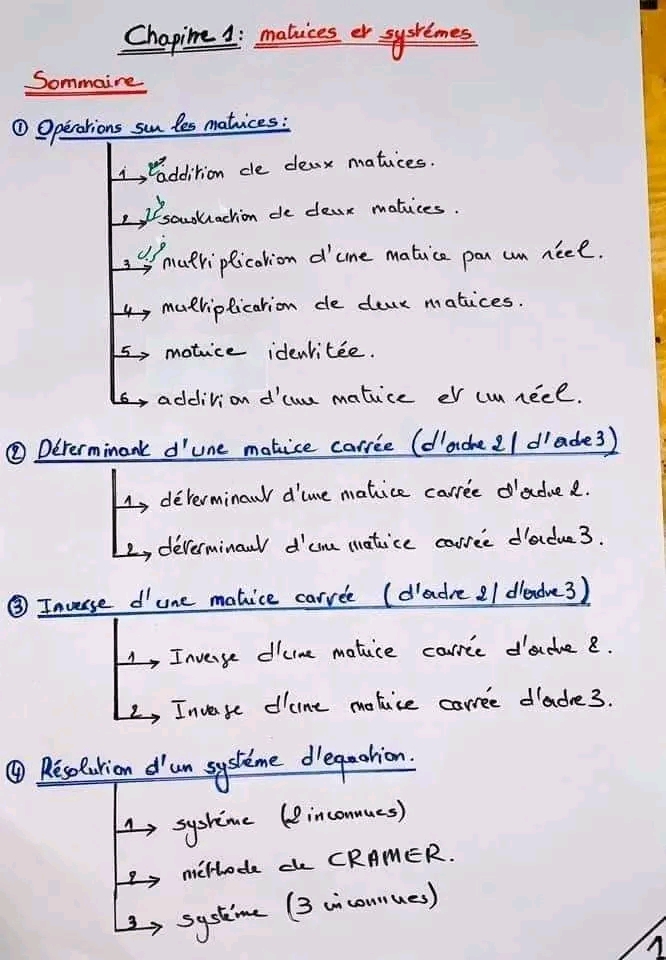 Chapitre 1: matrices et systémes
Sommaire
① Opérations sur les matrices:
1 → جمع addition de deux matrices.
2 → طرح soustraction de deux matrices.
3 → ضرب multiplication d'une matrice par un réel.
4 → multiplication de deux matrices.
5 → matrice identitée.
6 → addition d'une matrice et un réel.
② Déterminant d'une matrice carrée (d'ordre 2 / d'ordre 3)
1 → déterminant d'une matrice carrée d'ordre 2.
2 → déterminant d'une matrice carrée d'ordre 3.
③ Inverse d'une matrice carrée (d'ordre 2 / d'ordre 3)
1 → Inverse d'une matrice carrée d'ordre 2.
2 → Inverse d'une matrice carrée d'ordre 3.
④ Résolution d'un systéme d'equation.
1 → systéme (2 inconnues)
2 → méthode de CRAMER.
3 → systéme (3 inconnues)
1